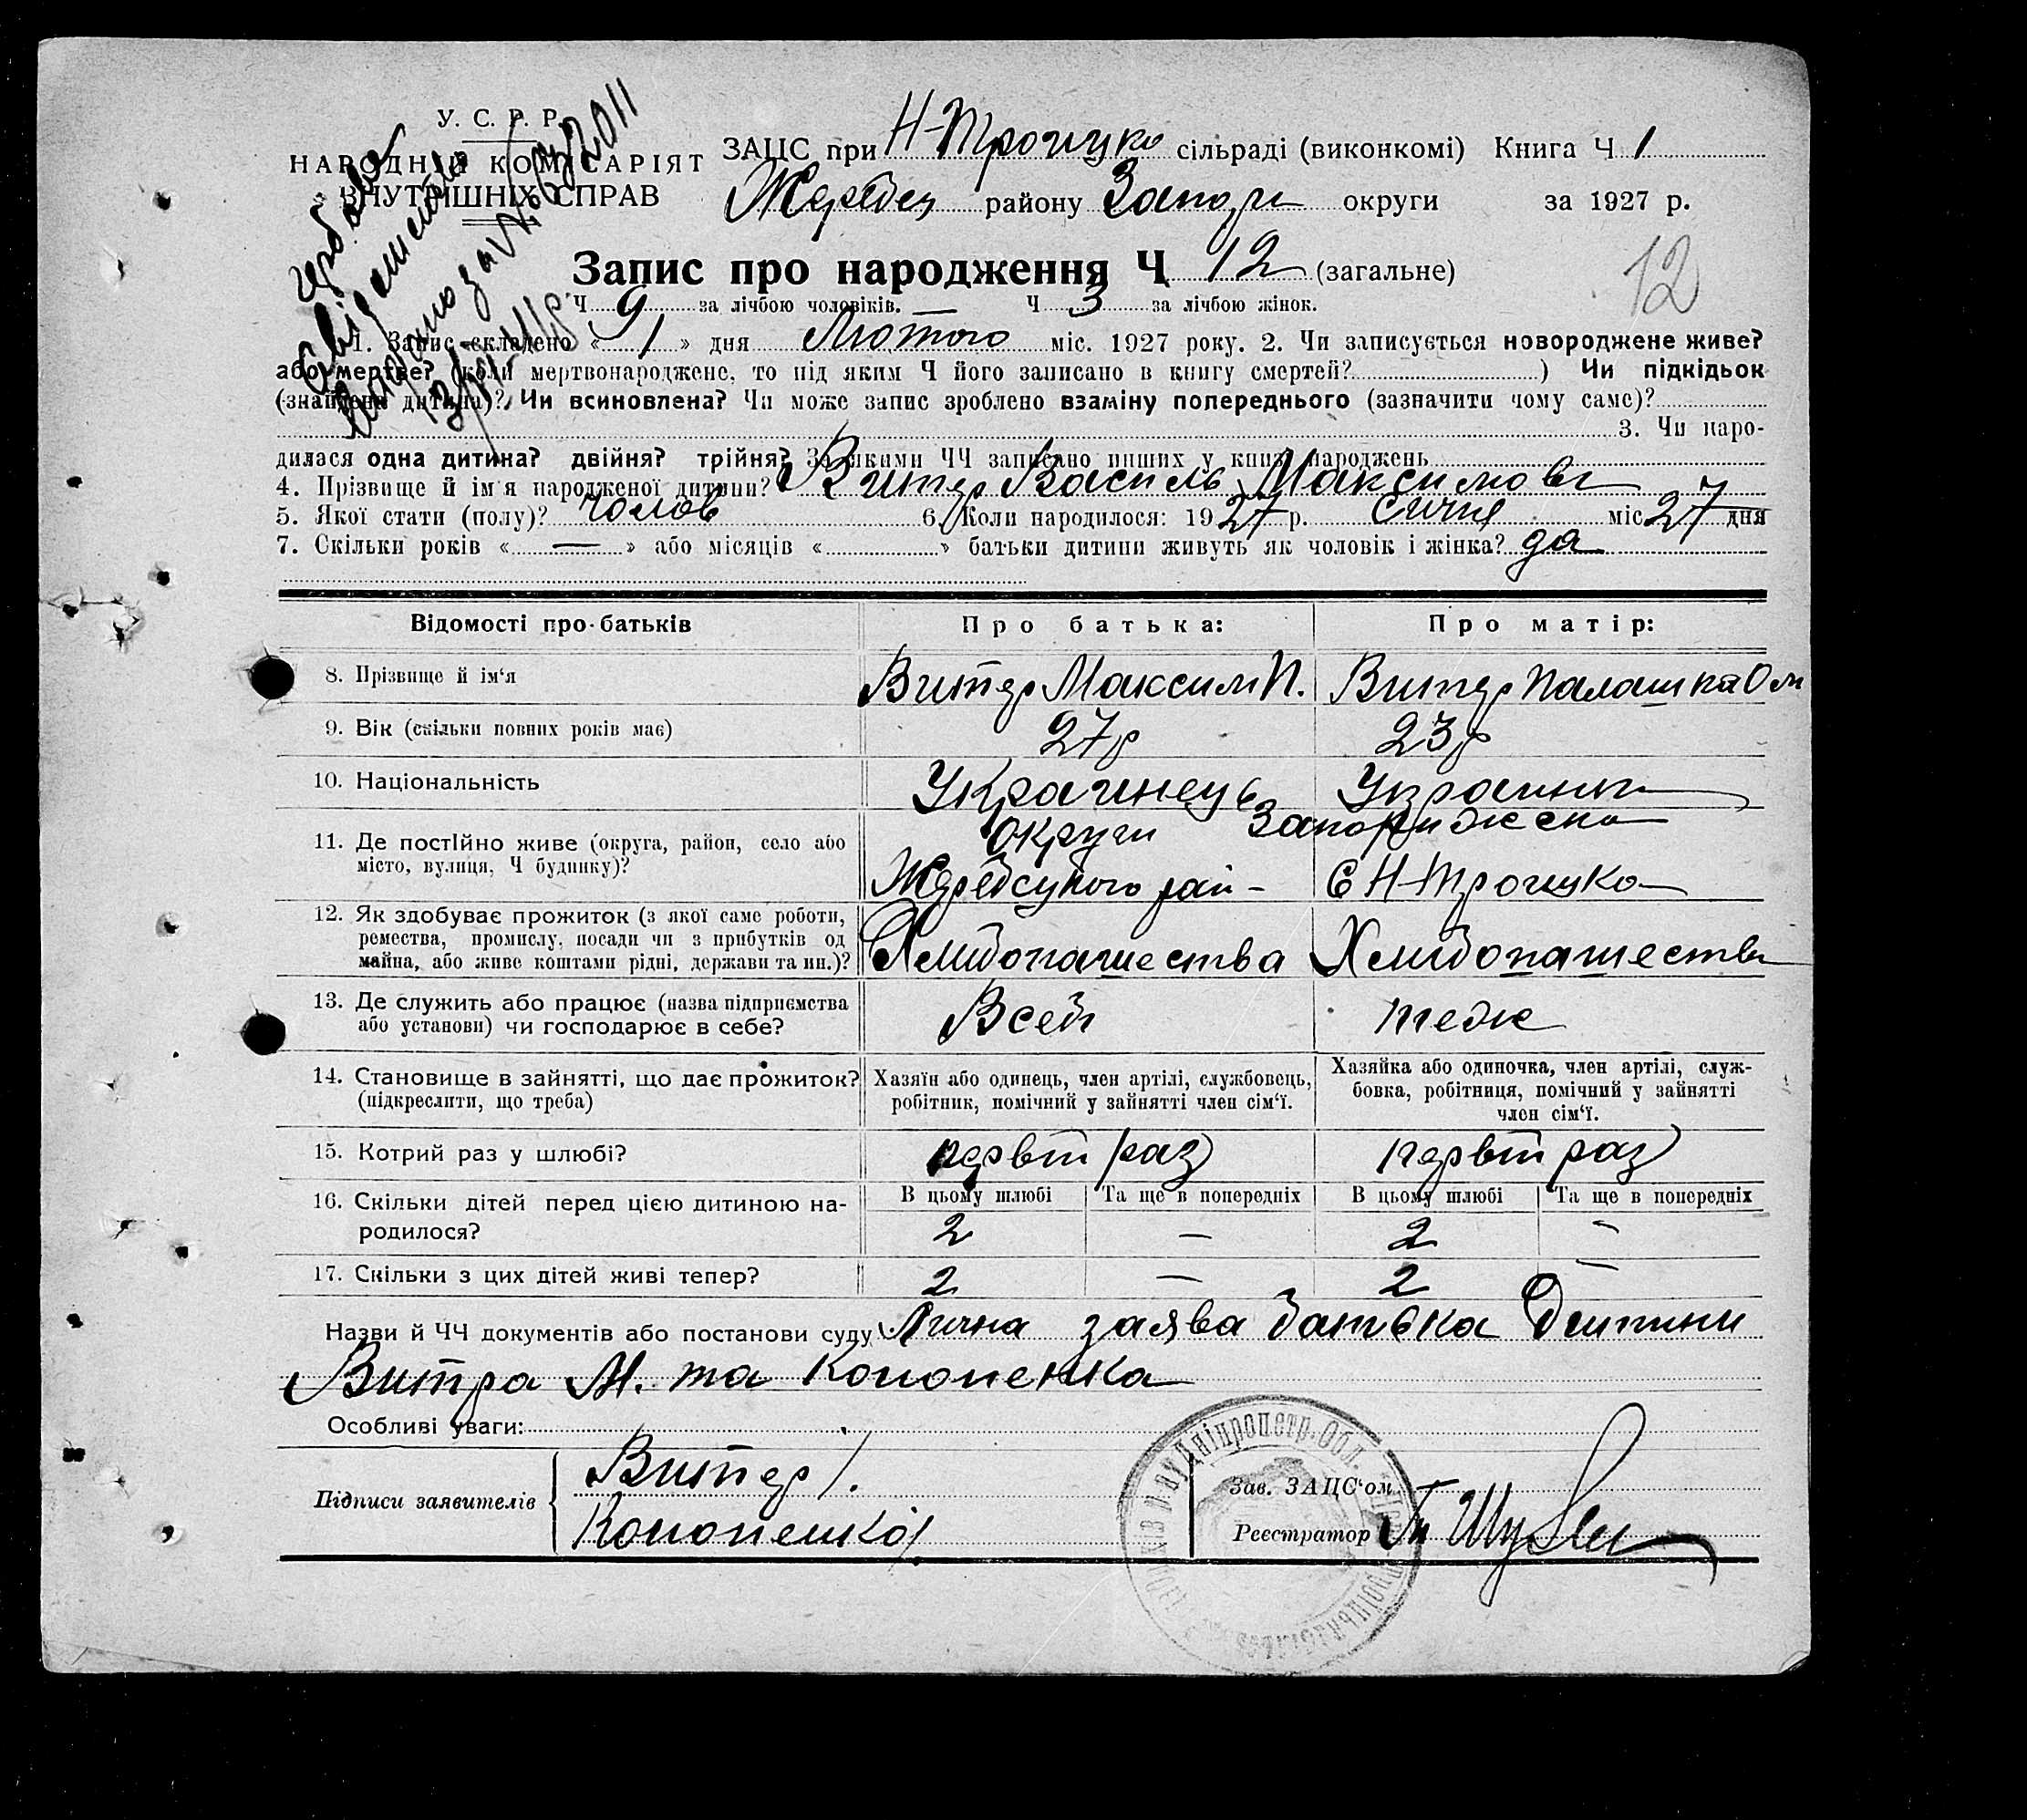 У. С. Р. Р.
НАРОДНІЙ КОМІСАРІЯТ
ВНУТРІШНІХ СПРАВ
ЗАЦС при Н-Троицко сільраді (виконкомі) Книга Ч 1
Жеребец району Запори округи за 1927 р.
Запис про народження Ч 12 (загальне)
12
Ч 9 за лічбою чоловіків. — Ч 3 за лічбою жінок.
1. Запис складено « 1 » дня Лютого міс. 1927 року. 2. Чи записується новороджене живе?
або мертве? (коли мертвонароджене, то під яким Ч його записано в книгу смертей? ) Чи підкідьок
(знайдена дитина)? Чи всиновлена? Чи може запис зроблено взаміну попереднього (зазначити чому саме)?
3. Чи наро-
дилася одна дитина? двійня? трійня? За якими ЧЧ записано инших у книзі народжень
4. Прізвище й ім'я народженої дитини? Витер Василь Максимови
5. Якої стати (полу)? чолов 6. Коли народилося: 1927 р. Січня міс 27 дня
7. Скільки років « — » або місяців « » батьки дитини живуть як чоловік і жінка? да
Відомості про батьків Про батька: Про матір:
8. Прізвище й ім'я Витер Максим П. Витер Палашка Ом
9. Вік (скільки повних років має) 27р 23р
10. Національність Украинець Украинка
11. Де постійно живе (округа, район, село або округи Запорижска
місто, вулиця, Ч будинку)? Жеребецького рай- С Н-Троицко
12. Як здобуває прожиток (з якої саме роботи,
ремества, промислу, посади чи з прибутків од Хлибопашества Хлибопашества
майна, або живе коштами рідні, держави та ин.)?
13. Де служить або працює (назва підприємства Всеби теж
або установи) чи господарює в себе?
14. Становище в зайнятті, що дає прожиток? Хазяїн або одинець, член артілі, службовець, Хазяйка або одиночка, член артілі, служ-
(підкреслити, що треба) робітник, помічний у зайнятті член сім'ї. бовка, робітниця, помічний у зайнятті
член сім'ї.
15. Котрий раз у шлюбі? первий раз первий раз
16. Скільки дітей перед цією дитиною на- В цьому шлюбі Та ще в попередніх В цьому шлюбі Та ще в попередніх
родилося? 2 — 2 —
17. Скільки з цих дітей живі тепер? 2 — 2 —
Назви й ЧЧ документів або постанови суду Лична заява батька Дитини
Витра М. та Кононенка
Особливі уваги:
Підписи заявителів Витер
Кононенко
Зав. ЗАЦС'ом
Реєстратор